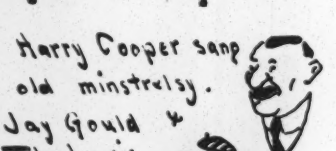 Harry Cooper sang
old minstrelsy.
Jay Gould &